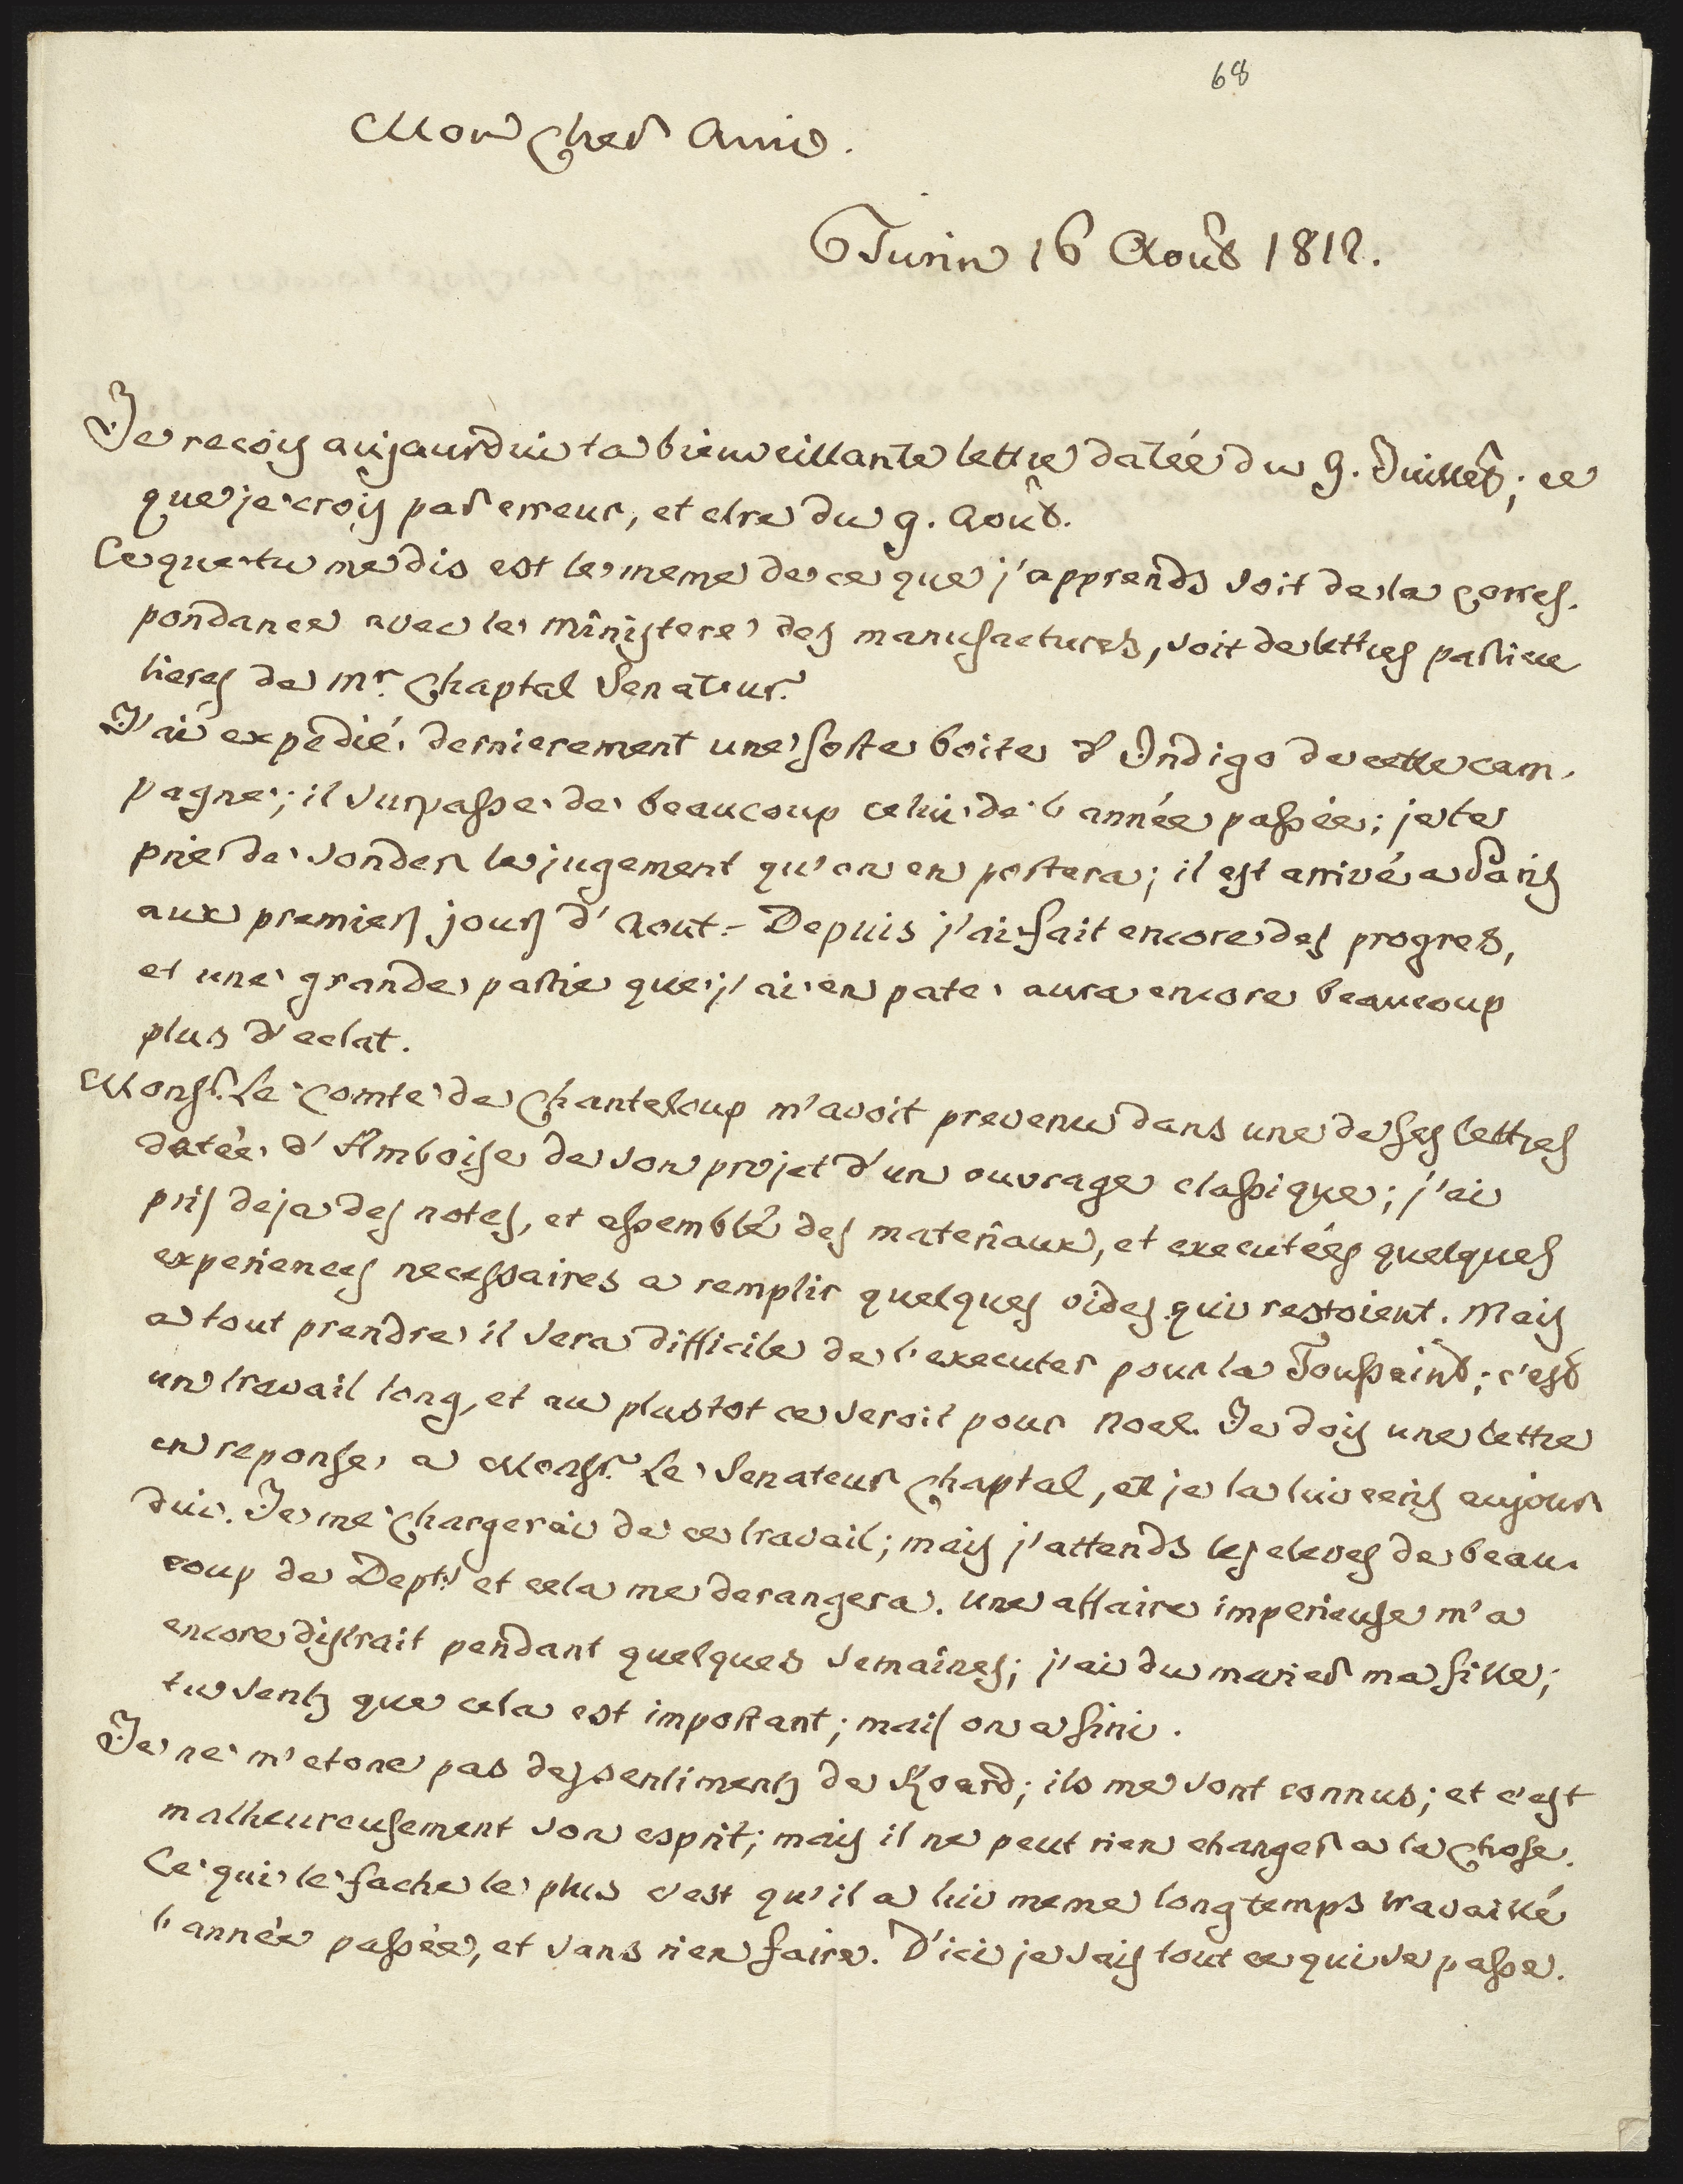 68
Mon cher Ami.
Turin 16 Août 1812.
Je reçois aujourdui ta bienveillante lettre datée du 9. Juillet; ce
que je crois par erreur, et etre du 9. Août.
Ce que tu me dis est le meme de ce que j'apprends soit de la corres-
pondance avec le ministere des manufactures, soit de lettres particu
lieres de Mr. Chaptal Senateur.
J'ai expedié dernierement une forte boite d'Indigo de cette cam-
pagne; il surpasse de beaucoup celui de l'année passée; je te
prie de sonder le jugement qu'on en portera; il est arrivé a Paris
aux premiers jours d'Aout. – Depuis j'ai fait encore des progres,
et une grande partie que j'ai en pate aura encore beaucoup
plus d'eclat.
Monsr. Le Comte de Chanteloup m'avoit prevenu dans une de ses lettres
datée d'Amboise de son projet d'un ouvrage classique; j'ai
pris deja des notes, et assemblé des materiaux, et executées quelques
experiences necessaires a remplir quelques vides qui restoient. Mais
a tout prendre il sera difficile de l'executer pour la Toussaint; c'est
un travail long, et au plustot ce seroit pour Noel. Je dois une lettre
en reponse a Monsr. Le Senateur Chaptal, et je la lui ecris aujour
dui. Je me chargerai de ce travail; mais j'attends les eleves de beau-
coup de Depts. et cela me derangera. Une affaire imperieuse m'a
encore distrait pendant quelques semaines; j'ai du marier ma fille;
tu sents que cela est important; mais on a fini.
Je ne m'etone pas des sentiments de Roard; ils me sont connus; et c'est
malheureusement son esprit; mais il ne peut rien changer a la chose.
Ce qui le fache le plus c'est qu'il a lui meme longtemps travaillé
l'année passée, et sans rien faire. D'ici je sais tout ce qui se passe.